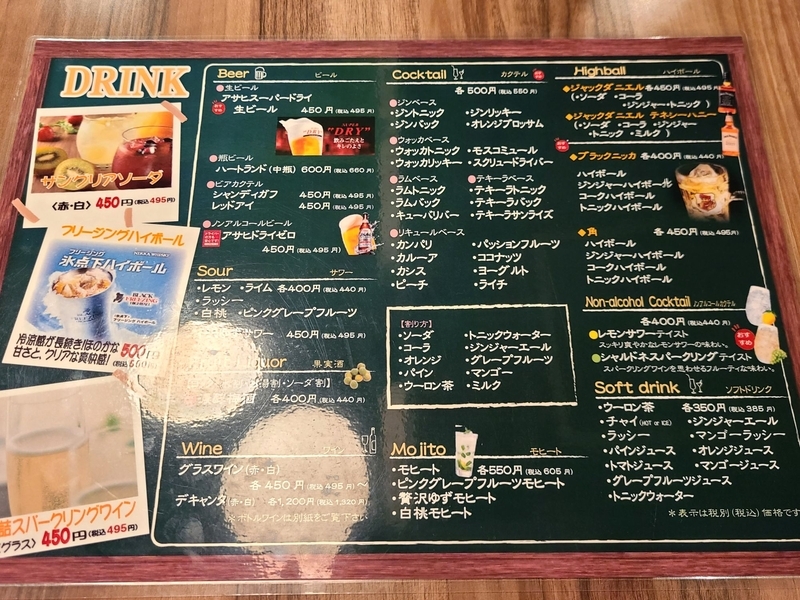 DRINK
サングリアソーダ
〈赤・白〉450円(税込495円)
フリージングハイボール
フリージング
NIKKA WHISKY
氷点下ハイボール
BLACK
FREEZING
冷涼感が長続き!ほのかな
甘さと、クリアな爽快感!
500円
(税込550円)
スパークリングワイン
〈グラス〉450円(税込495円)
Beer ビール
生ビール
アサヒスーパードライ
生ビール 450円(税込495円)
SUPER
"DRY"
飲みごたえと
キレのよさ
瓶ビール
ハートランド(中瓶) 600円(税込660円)
ビアカクテル
シャンディガフ 450円(税込495円)
レッドアイ 450円(税込495円)
ノンアルコールビール
アサヒドライゼロ
450円(税込495円)
Sour サワー
・レモン ・ライム 各400円(税込440円)
・ラッシー
・白桃 ・ピンクグレープフルーツ
サワー 450円(税込495円)
果実酒
湯割・ソーダ割】
各400円(税込440円)
Wine ワイン
グラスワイン(赤・白)
各450円(税込495円)~
デキャンタ(赤・白) 各1,200円(税込1,320円)
※ボトルワインは別紙をご覧下さい
Cocktail カクテル
各500円(税込550)
ジンベース
・ジントニック ・ジンリッキー
・ジンバック ・オレンジブロッサム
ウォッカベース
・ウォッカトニック ・モスコミュール
・ウォッカリッキー ・スクリュードライバー
ラムベース テキーラベース
・ラムトニック ・テキーラトニック
・ラムバック ・テキーラバック
・キューバリバー ・テキーラサンライズ
リキュールベース
・カンパリ ・パッションフルーツ
・カルーア ・ココナッツ
・カシス ・ヨーグルト
・ピーチ ・ライチ
【割り方】
・ソーダ ・トニックウォーター
・コーラ ・ジンジャーエール
・オレンジ ・グレープフルーツ
・パイン ・マンゴー
・ウーロン茶 ・ミルク
Mojito モヒート
・モヒート 各550円(税込605円)
・ピンクグレープフルーツモヒート
・贅沢ゆずモヒート
・白桃モヒート
Highball ハイボール
◆ジャックダニエル 各450円(税込495円)
(・ソーダ ・コーラ
・ジンジャー・トニック )
◆ジャックダニエル テネシーハニー
(・ソーダ ・コーラ ・ジンジャー
・トニック ・ミルク )
◆ブラックニッカ 各400円(税込440円)
ハイボール
ジンジャーハイボール
コークハイボール
トニックハイボール
◆角 各450円(税込495円)
ハイボール
ジンジャーハイボール
コークハイボール
トニックハイボール
Non-alcohol Cocktail ノンアルコールカクテル
各400円(税込440円)
レモンサワーテイスト
スッキリ爽やかなレモンサワーの味わい。
おすすめ
シャルドネスパークリングテイスト
スパークリングワインを思わせるフルーティな味わい。
Soft drink ソフトドリンク
・ウーロン茶 各350円(税込385円)
・チャイ(HOT or ICE) ・ジンジャーエール
・ラッシー ・マンゴーラッシー
・パインジュース ・オレンジジュース
・トマトジュース ・マンゴージュース
・グレープフルーツジュース
・トニックウォーター
＊表示は税別(税込)価格です